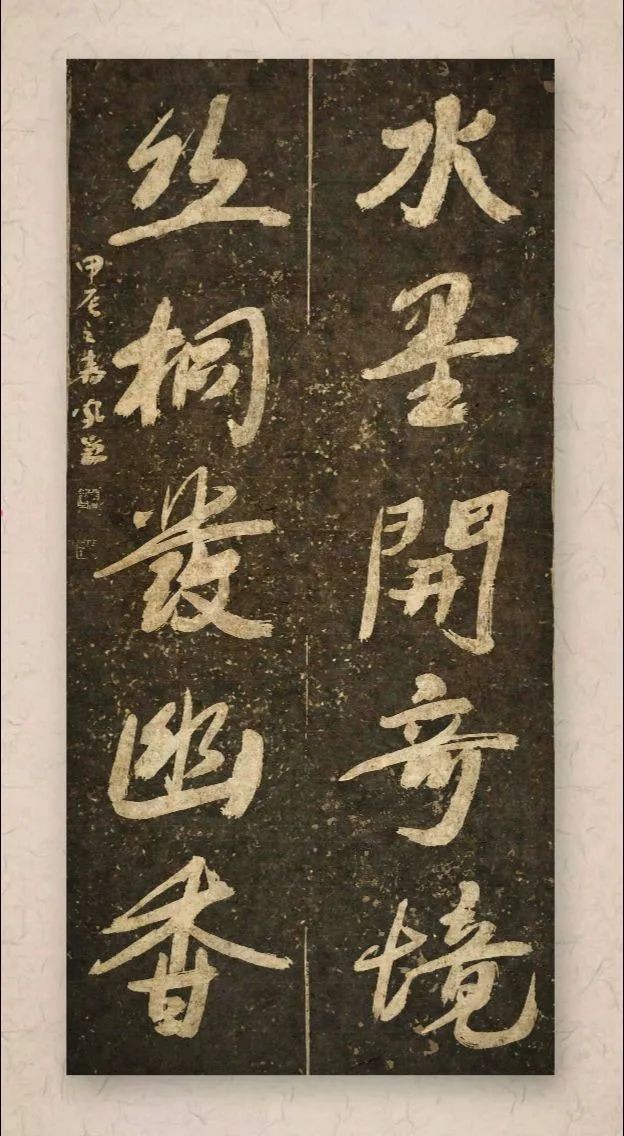 水墨開奇境
丝桐發幽香
甲辰之春